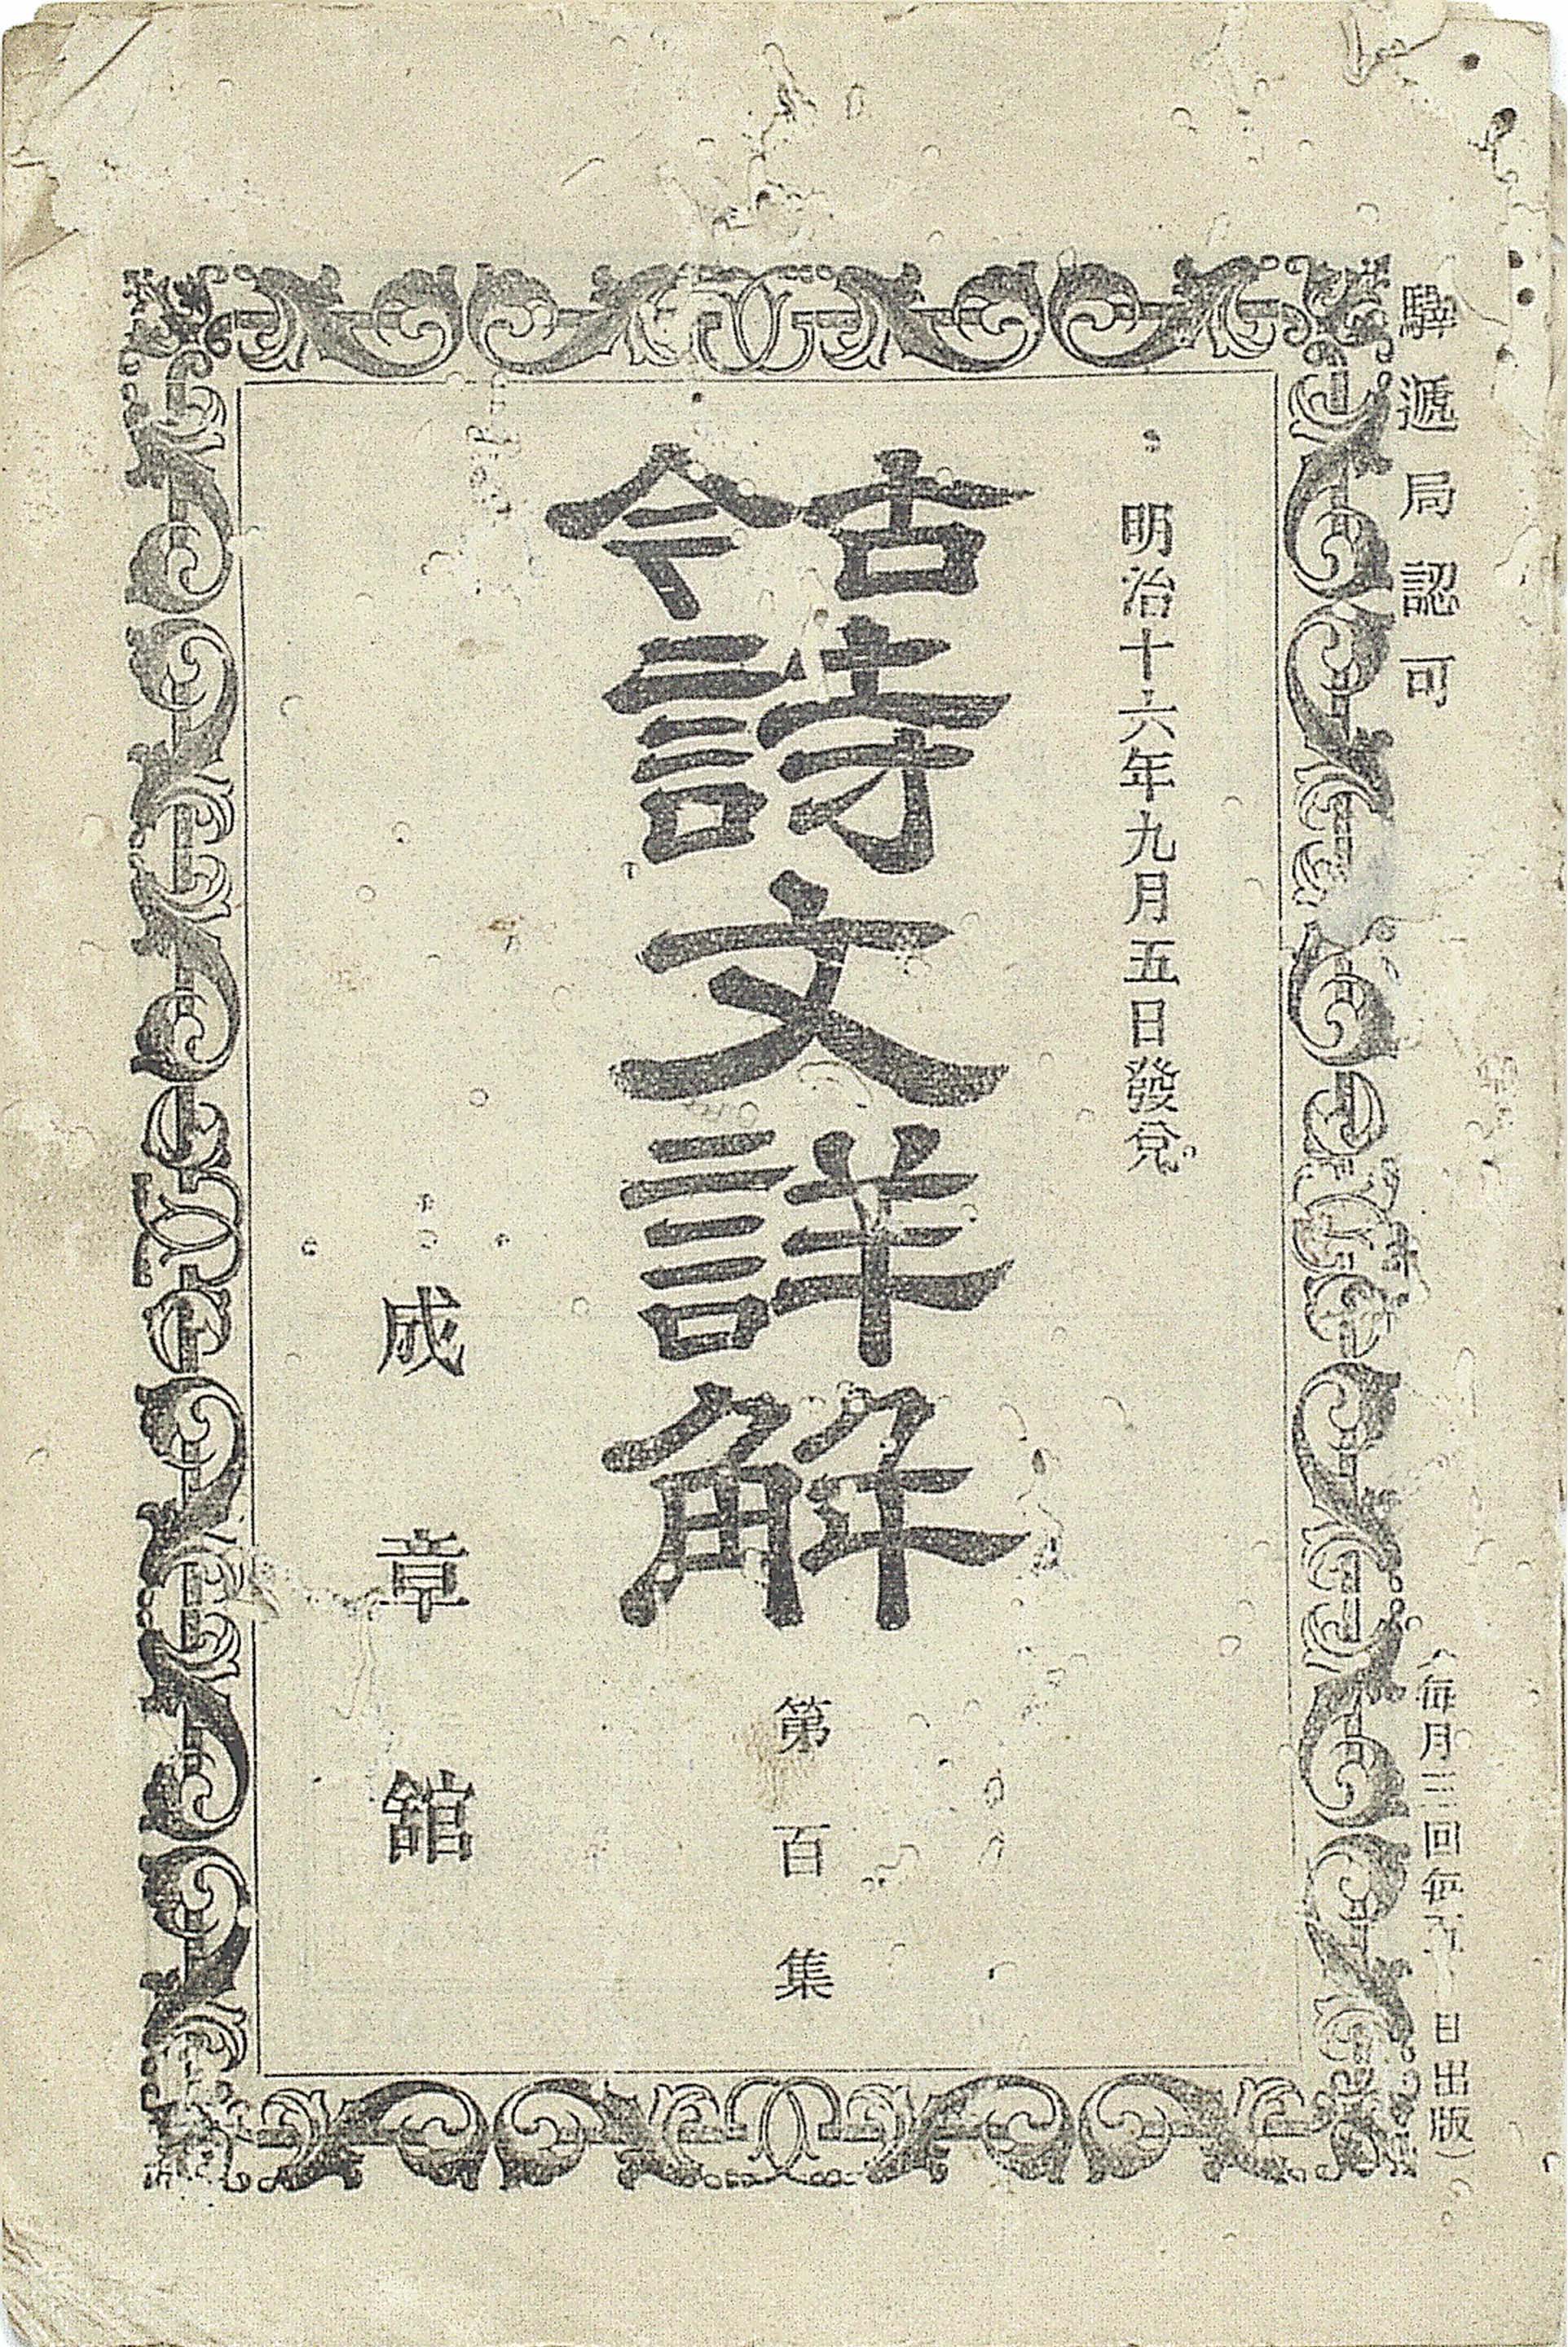 驛遞局認可
(每月三回每五十日出版)
明治十六年九月五日發兌
古今詩文詳解
第百集
成章舘